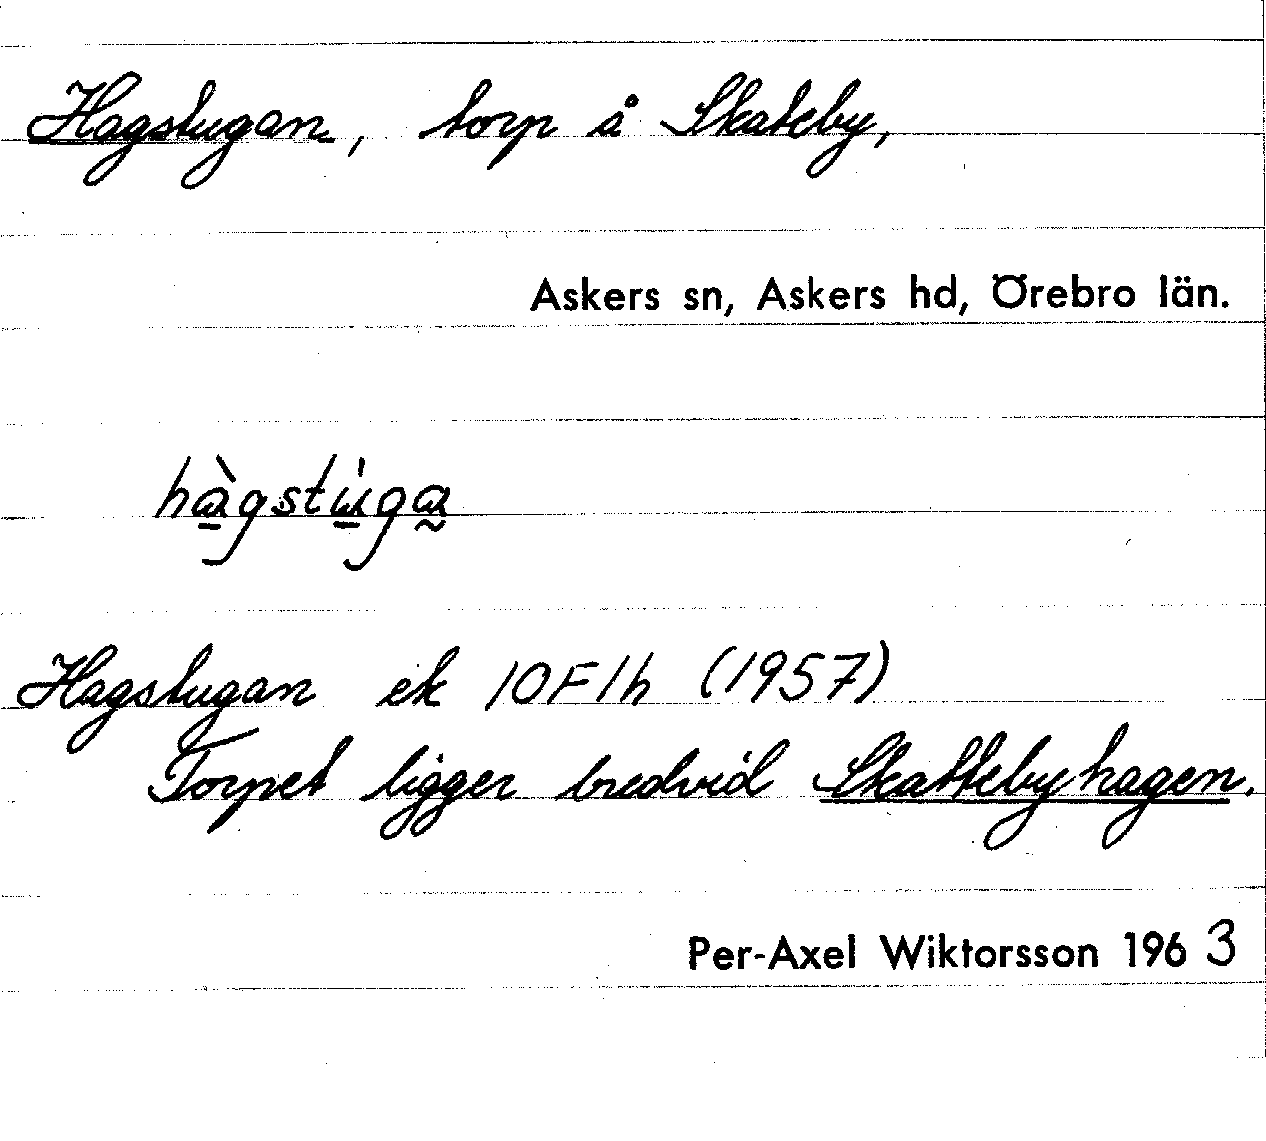 Hagstugan, torp å Skateby,
Askers sn, Askers hd, Örebro län.
hàgstu̇ga
Hagstugan ek 10F1h (1957)
Torpet ligger bredvid Skattebyhagen.
Per-Axel Wiktorsson 1963